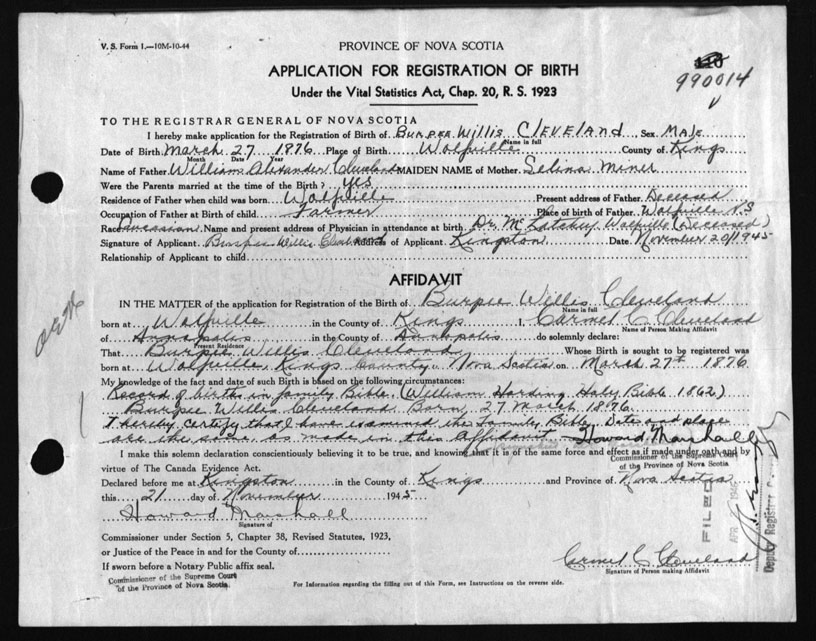 V. S. Form 1.—10M-10-44
PROVINCE OF NOVA SCOTIA
110
990014
APPLICATION FOR REGISTRATION OF BIRTH
Under the Vital Statistics Act, Chap. 20, R. S. 1923
TO THE REGISTRAR GENERAL OF NOVA SCOTIA
I hereby make application for the Registration of Birth of Burpee Willis Cleveland Sex Male
Name in full
Date of Birth March 27 1876 Place of Birth Wolfville County of Kings
Month Date Year
Name of Father William Alexander Cleveland MAIDEN NAME of Mother Selina Miner
Were the Parents married at the time of the Birth? yes
Residence of Father when child was born Wolfville Present address of Father Deceased
Occupation of Father at Birth of child Farmer Place of birth of Father Wolfville N.S
Race Caucasian Name and present address of Physician in attendance at birth Dr. McLatchey Wolfville (Deceased)
Signature of Applicant Burpee Willis Cleveland Address of Applicant Kingston Date November 20/1945
Relationship of Applicant to child
AFFIDAVIT
IN THE MATTER of the application for Registration of the Birth of Burpee Willis Cleveland
Name in full
born at Wolfville in the County of Kings I, Carmel C. Cleveland
Name of Person Making Affidavit
of Annapolis in the County of Annapolis do solemnly declare:
Present Residence
That Burpee Willis Cleveland Whose Birth is sought to be registered was
born at Wolfville Kings County Nova Scotia on March 27th 1876
My knowledge of the fact and date of such Birth is based on the following circumstances:
Record of births in family Bible. (William Harding Holy Bible 1862)
Burpee Willis Cleveland Born 27 March 1876
I hereby certify that I have examined the Family Bible, Date and place
are the same as made in this Affidavit Howard Marshall
I make this solemn declaration conscientiously believing it to be true, and knowing that it is of the same force and effect as if made under oath and by
Commissioner of the Supreme Court
of the Province of Nova Scotia
virtue of The Canada Evidence Act.
Declared before me at Kingston in the County of Kings and Province of Nova Scotia
this 21 day of November 1945
Howard Marshall
Signature of
Commissioner under Section 5, Chapter 38, Revised Statutes, 1923,
or Justice of the Peace in and for the County of
If sworn before a Notary Public affix seal.
Carmel C Cleveland
Signature of Person making Affidavit
Commissioner of the Supreme Court
of the Province of Nova Scotia.
For Information regarding the filling out of this Form, see Instructions on the reverse side.
FILED
APR
Deputy Registrar